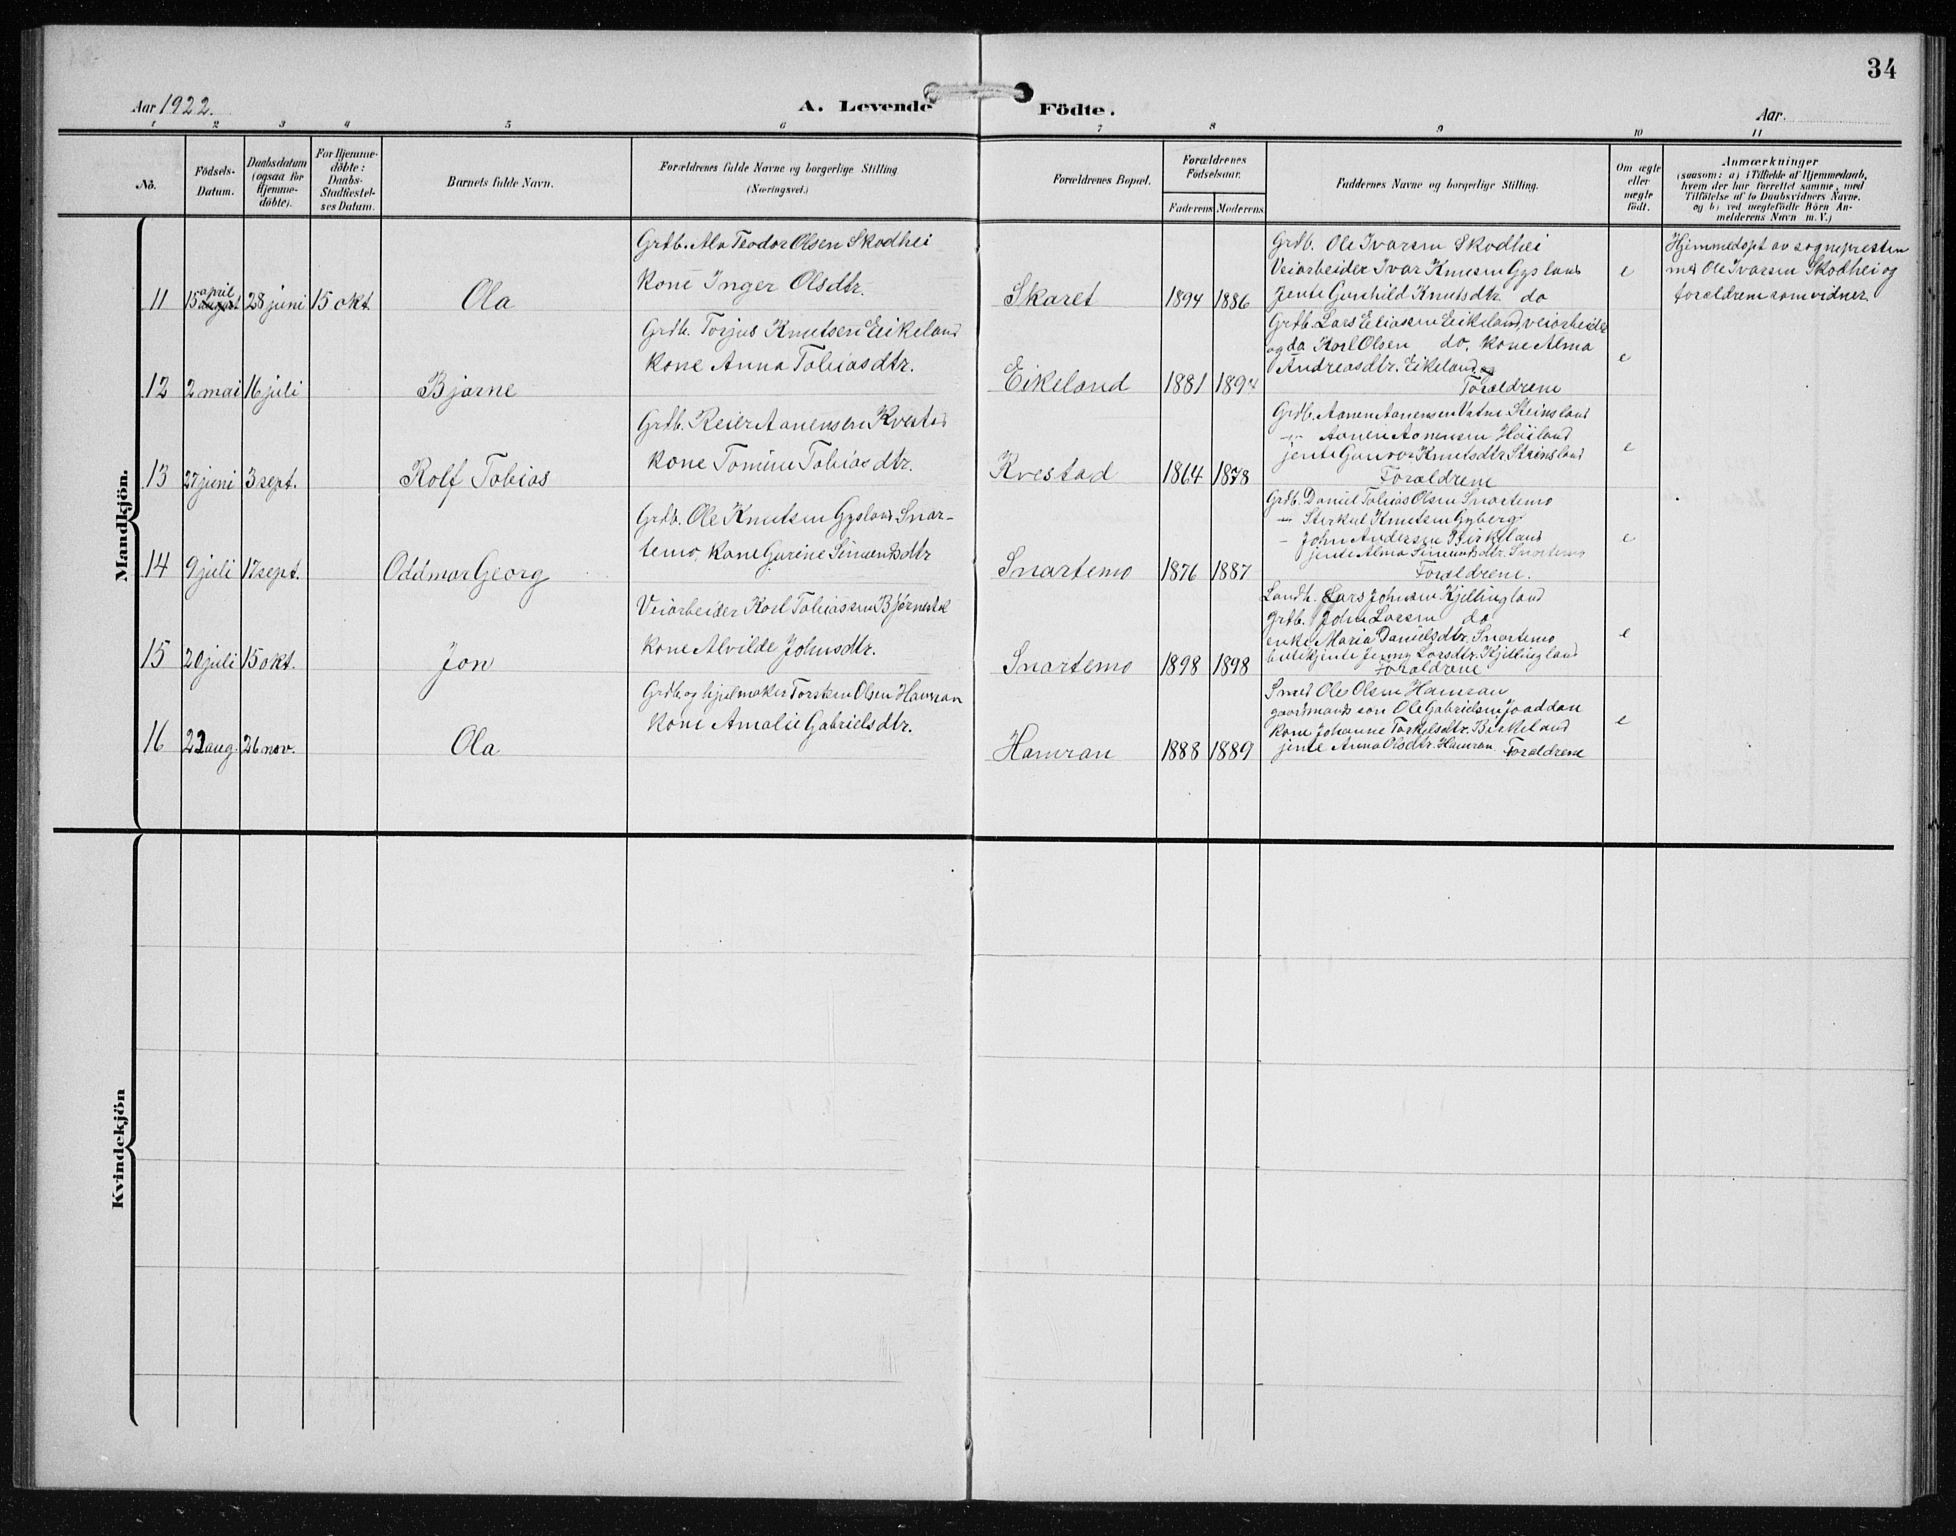 34
Aar 1922.
A. Levende Födte.
Aar.
1 2 3 4 5 6 7 8 9 10 11
No.
Födsels-Datum.
Daabsdatum (ogsaa for Hjemme-döbte).
For Hjemme-döbte: Daabs-Stadfæstel-ses Datum.
Barnets fulde Navn.
Forældrenes fulde Navne og borgerlige Stilling (Næringsvei.)
Forældrenes Bopæl.
Forældrenes Födselsaar.
Faderens Moderens
Faddernes Navne og borgerlige Stilling.
Om ægte eller uægte födt.
Anmærkninger
(saasom: a) i Tilfælde af Hjemmedaab,
hvem der har forrettet samme, med
Tilföielse af to Daabsvidners Navne.
og b) ved uægtefödte Börn An-
melderens Navn m. V.)
Mandkjön.
11
15 april
august
28 juni
15 okt.
Ola
Grdb. Ola Teodor Olsen Skodhei
kone Inger Olsdtr.
Skaret
1894 1886
Grdb. Ole Ivarsen Skodhei
Veiarbeider Ivar Knutsen Gysland
Jente Gunhild Knutsdtr. do
e
Hjemmedøpt av sognepresten
med Ole Ivarsen Skodhei og
foreldrene som vidner.
12
2 mai
16 juli
Bjarne
Grdb. Torjus Knutsen Eikeland
kone Anna Tobiasdtr.
Eikeland
1881 1894
Grdb. Lars Eliassen Eikeland, veiarbeider
og do Karl Olsen do, kone Alma
Andreasdtr. Eikeland og
Foreldrene
e
13
27 juni
3 sept.
Rolf Tobias
Grdb. Reier Aanensen Kvestad
kone Tomine Tobiasdtr.
Kvestad
1864 1878
Grdb. Aanen Aanensen Vatne Steinsland
-"- Aanen Aanensen Høiland
jente Gunvor Knutsdtr. Steinsland
Foreldrene
e
14
9 juli
17 sept.
Oddmar Georg
Grdb. Ole Knutsen Gysland Snar-
temo, kone Gurine Simensdtr
Snartemo
1876 1887
Grdb. Daniel Tobias Olsen Snartemo
-"- Sterkul Knutsen Gyberg
- John Andersen Birkeland
jente Alma Simensdtr. Snartemo
Foreldrene.
e
15
20 juli
15 okt.
Jon
Veiarbeider Karl Tobiassen Bjørnestøl
kone Alvilde Johnsdtr.
Snartemo
1898 1898
Landh. Lars Johnsen Kjellingland
Grdb. John Larsen do
enke Maria Danielsdtr. Snartemo
butikjente Jenny Larsdtr. Kjellingland
Foreldrene
e
16
22 aug.
26 nov.
Ola
Grdb. og hjulmaker Torstein Olsen Hamran
kone Amalie Gabrielsdtr.
Hamran
1888 1889
Smed Ole Olsen Hamran
gaardmands søn Ole Gabrielsen Joaddan
kone Johanne Torkelsdtr. Birkeland
jente Anna Olsdtr. Hamran Foreldrene
e
Kvindekjön